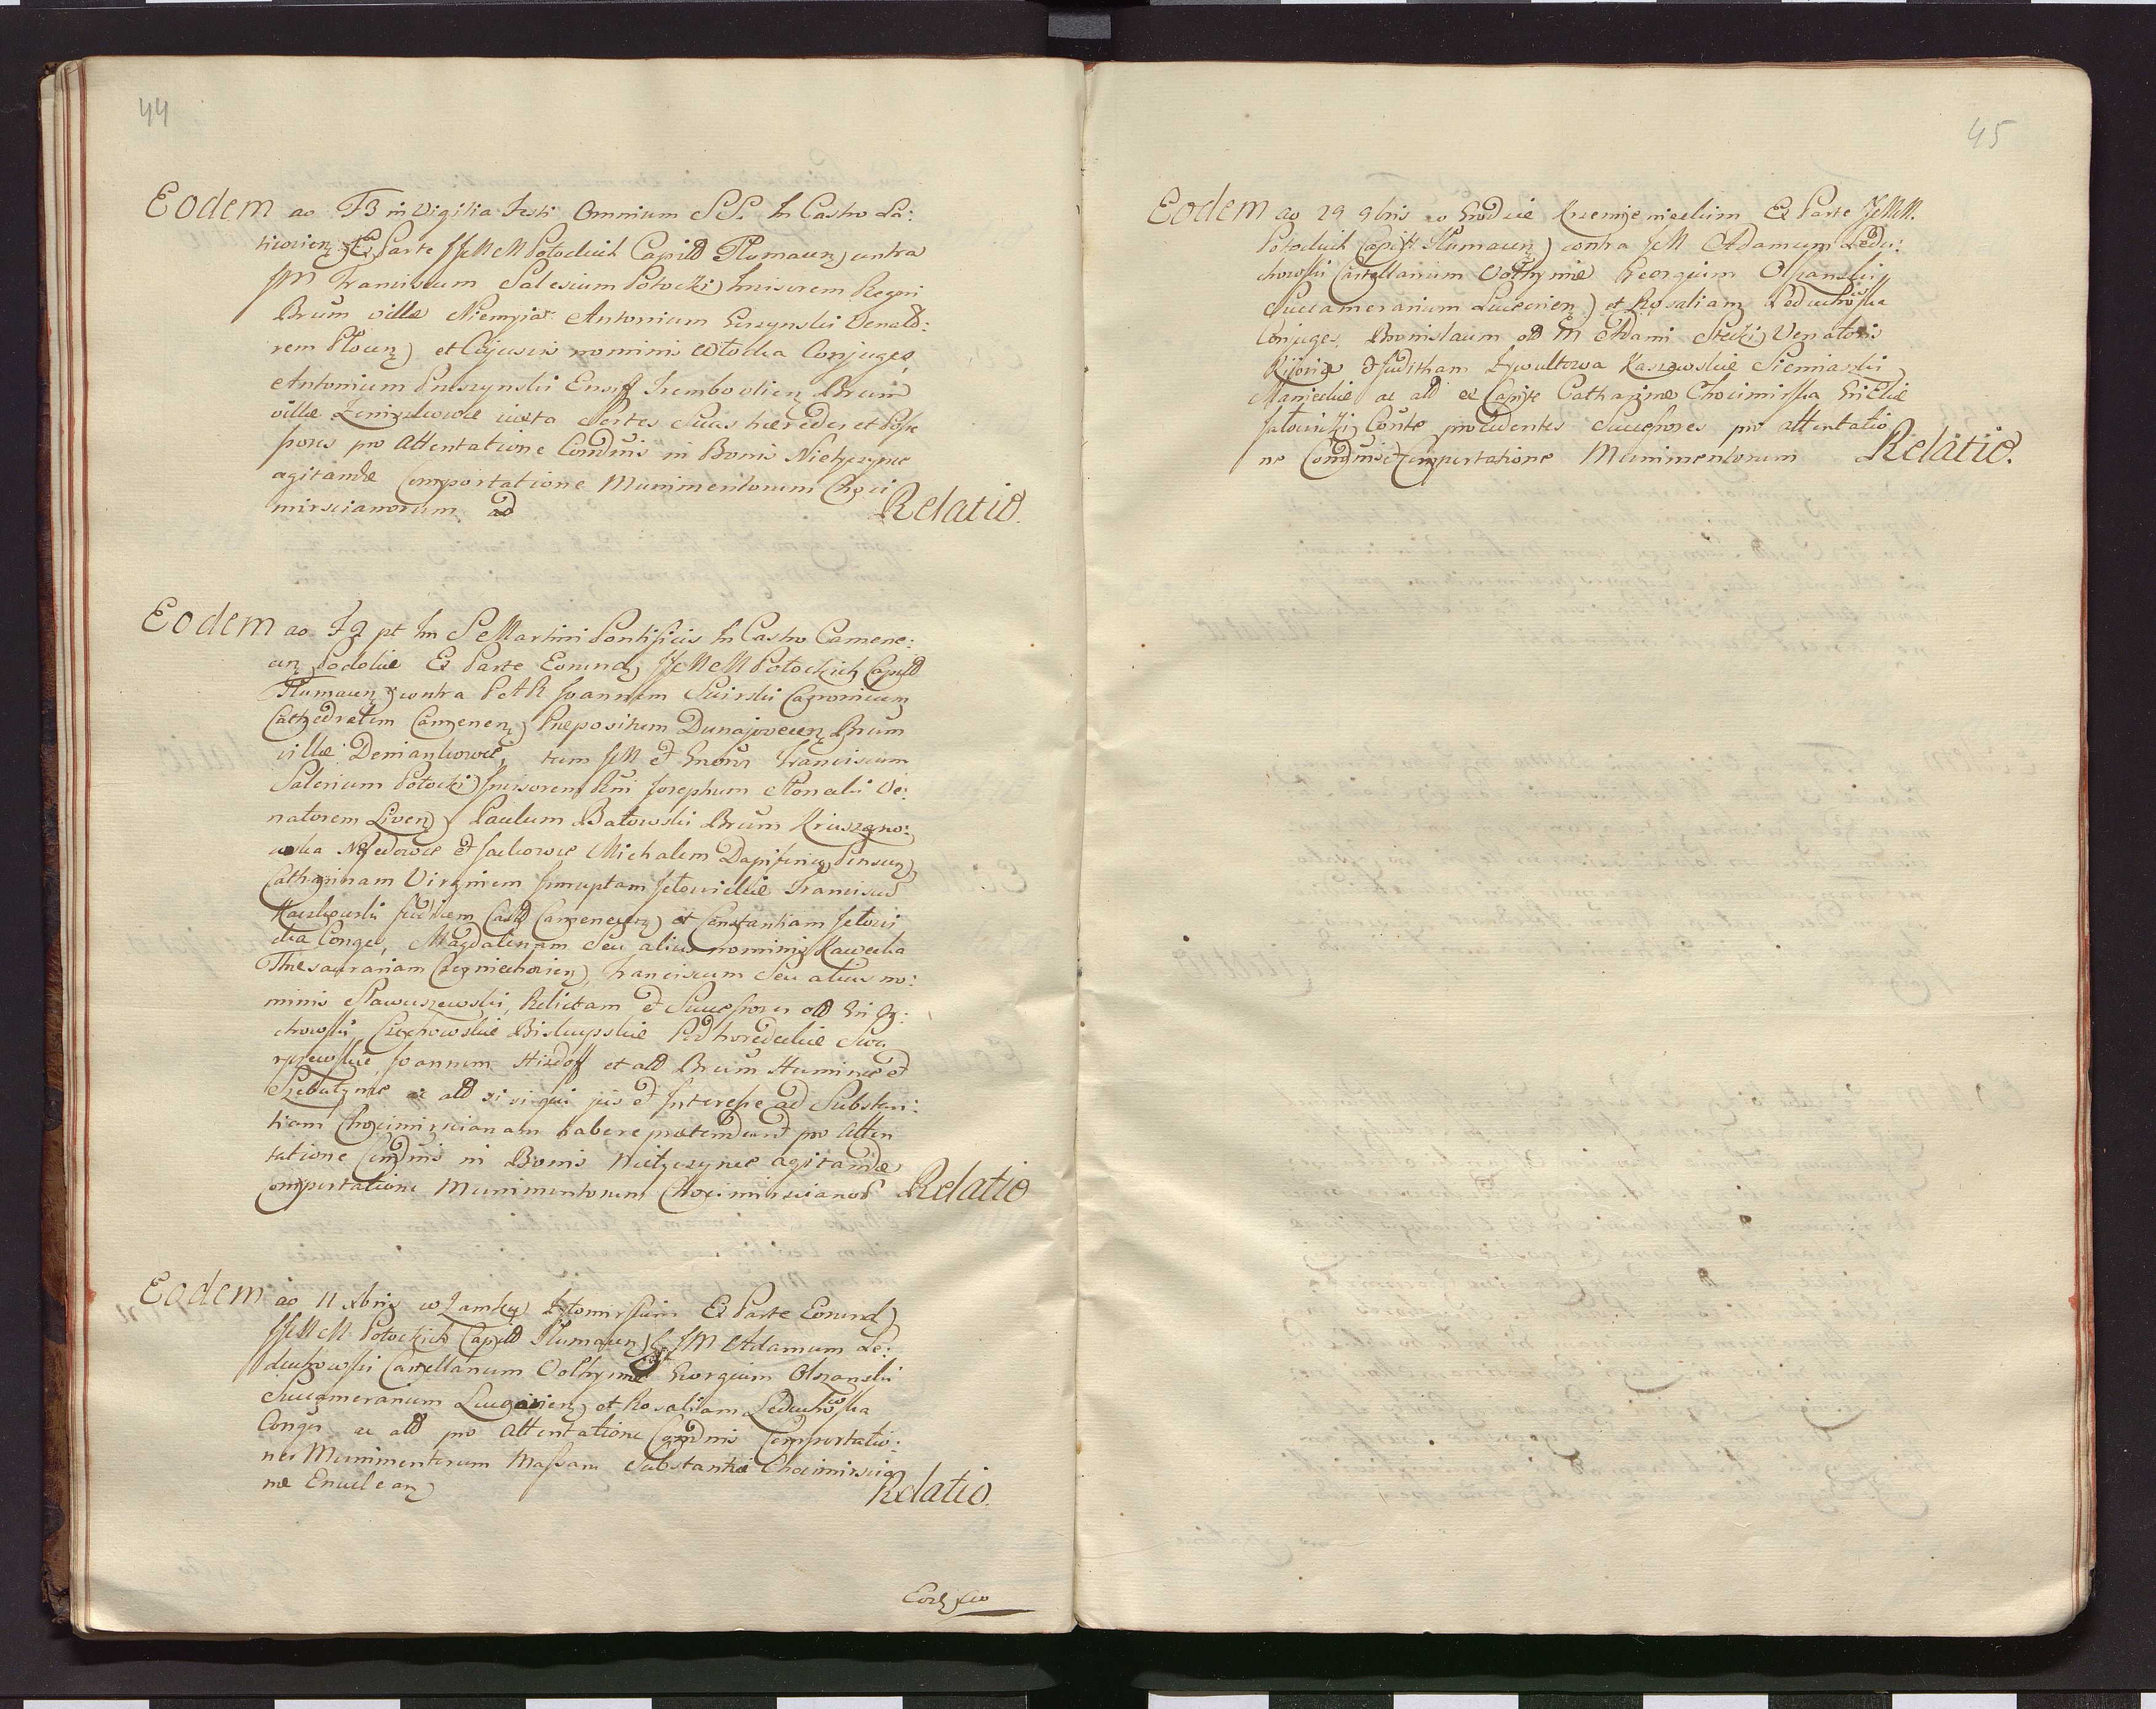 44
Eodem ao F3 in Vigilia Festi Omnium SS. In Castro La:
ticzovien Ex Parte JJMM Potockich Capit Tlumacen contra
JM Franciscum Salesium Potocki Incisorem Regni
Brum villæ Niemyia Antonium Gruszynski Venato:
rem Plocen et Cujusvis nominis Conjuges,
Antonium Pruszynski Ensif Trembovlien Brum
villæ iuxta Sortes Suas hæredes et Poss
sores pro Attentatione Condnis in Bonis Nietyszynce
agitandæ Comportatione Munimentorum Choci
mirscianorum ad Relatio.
Eodem ao F 2 pt fm S Martini Pontificis In Castro Camene:
cen Podoliæ Ex Parte Eorund JJMM Potockich Capit
Tlumacen contra PAR Joannem Swirski Canonicum
Cathedralem Camenen Præpositum Dunajovecen Brum
villæ Demiankowce, tum JM et Gnosos Franciscum
Salesium Potocki Incisorem Rni Josephum Stonecki Ve:
natorem Liven Paulum Batowski Brum Kruszano:
wka Nefedowce et Jackowce Michalem Dapiferum Pinscen
Catharinam Virginem Innuptam Jełowickie Franciscum
Judicem Cast Camenecen et Constantiam Jełowi
cka Conges, Magdalenam Seu alius nominis Kawecka
Thesaurariam Czerniechovien, Franciscum Seu alius no:
minis Stawuszewski, Relictam et Successores old Gni Cze:
chowski Czechowskie Biskupskie Podhorodeckie Swa
ryszewskie, Joannem et ald Brum Huminie et
Szebutynce ac ald si si qui jus et Interesse ad Substan:
tiam Chocimirscianam habere prætendend pro Atten
tatione Condnis in Bonis Nietyszynce agitandæ
Comportatione Munimentorum Chocimirscianor Relatio
Eodem ao 11 xbris w Zamku Żytomirskim Ex Parte Eorund
JJMM Potockich Capit Tlumacen JM Adamum Le:
duchowski Castellanum Volhyniæ Georgium Olszanski
Succamerarium Luceorien et Rosaliam Leduchowska
Conges ac ald pro Attentatione Condnis Comportatio:
nis Munimentorum Massam Substantiæ Chocimirscia
næ Enuclean Relatio.
45
Eodem ao 29 9bris w Grodzie Krzemienieckim Ex Parte JJMM.
Potockich Capit Tlumacen contra JM Adamum Ledu:
chowski Castellanum Volhyniæ Georgium Olszanski
Succamerarium Luceorien et Rosaliam Leduchowska
Conjuges, Bronislaum old M Adami Stecki Venatoris
Kijoviæ et Juditham Kaszowskie Siemianski
Manieckie ac ald ex Capite Catharinæ Chocimirska
Conte procedentes Successores pro attentatio
ne Condnis et Comportatione Munimentorum Relatio.